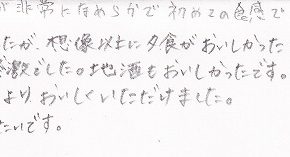 が非常になめらかで初めての食感で
たが、想像以上に夕食がおいしかった
激でした。地酒もおいしかったです。
よりおいしくいただけました。
たいです。